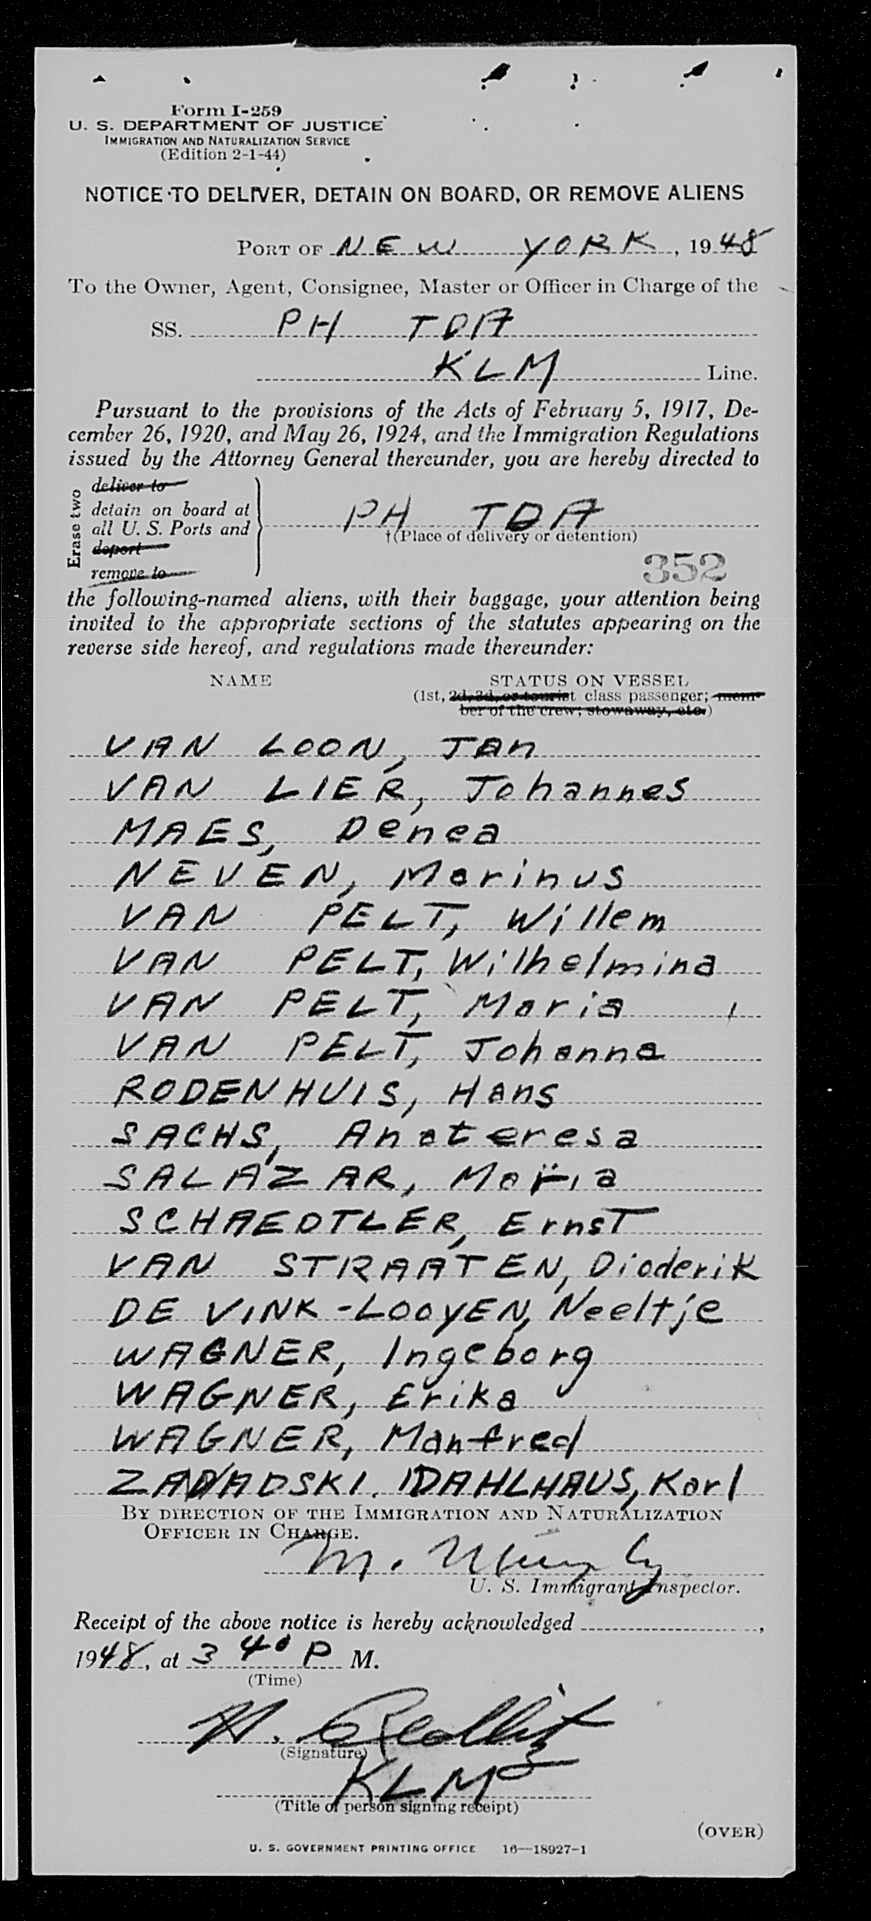 Form I-259
U. S. DEPARTMENT OF JUSTICE
IMMIGRATION AND NATURALIZATION SERVICE
(Edition 2-1-44)
NOTICE TO DELIVER, DETAIN ON BOARD, OR REMOVE ALIENS
PORT OF NEW YORK, 1948
To the Owner, Agent, Consignee, Master or Officer in Charge of the
SS. PH TDA
KLM Line.
Pursuant to the provisions of the Acts of February 5, 1917, De-
cember 26, 1920, and May 26, 1924, and the Immigration Regulations
issued by the Attorney General thereunder, you are hereby directed to
Erase two
deliver to
detain on board at
all U. S. Ports and
deport
remove to
PH TDA
†(Place of delivery or detention)
352
the following-named aliens, with their baggage, your attention being
invited to the appropriate sections of the statutes appearing on the
reverse side hereof, and regulations made thereunder:
NAME STATUS ON VESSEL
(1st, 2d, 3d, or tourist class passenger; mem-
ber of the crew; stowaway, etc.)
VAN LOON, Jan
VAN LIER, Johannes
MAES, Denea
NEVEN, Marinus
VAN PELT, Willem
VAN PELT, Wilhelmina
VAN PELT, Maria
VAN PELT, Johanna
RODENHUIS, Hans
SACHS, Anateresa
SALAZAR, Maria
SCHAEDTLER, Ernst
VAN STRAATEN, Dioderik
DE VINK-LOOYEN, Neeltje
WAGNER, Ingeborg
WAGNER, Erika
WAGNER, Manfred
DAHLHAUS, Karl
BY DIRECTION OF THE IMMIGRATION AND NATURALIZATION
OFFICER IN CHARGE.
M. Murphy
U. S. Immigrant Inspector.
Receipt of the above notice is hereby acknowledged ,
1948, at 3 40 P M.
(Time)
H.
(Signature)
KLM
(Title of person signing receipt)
(OVER)
U. S. GOVERNMENT PRINTING OFFICE 16—18927-1